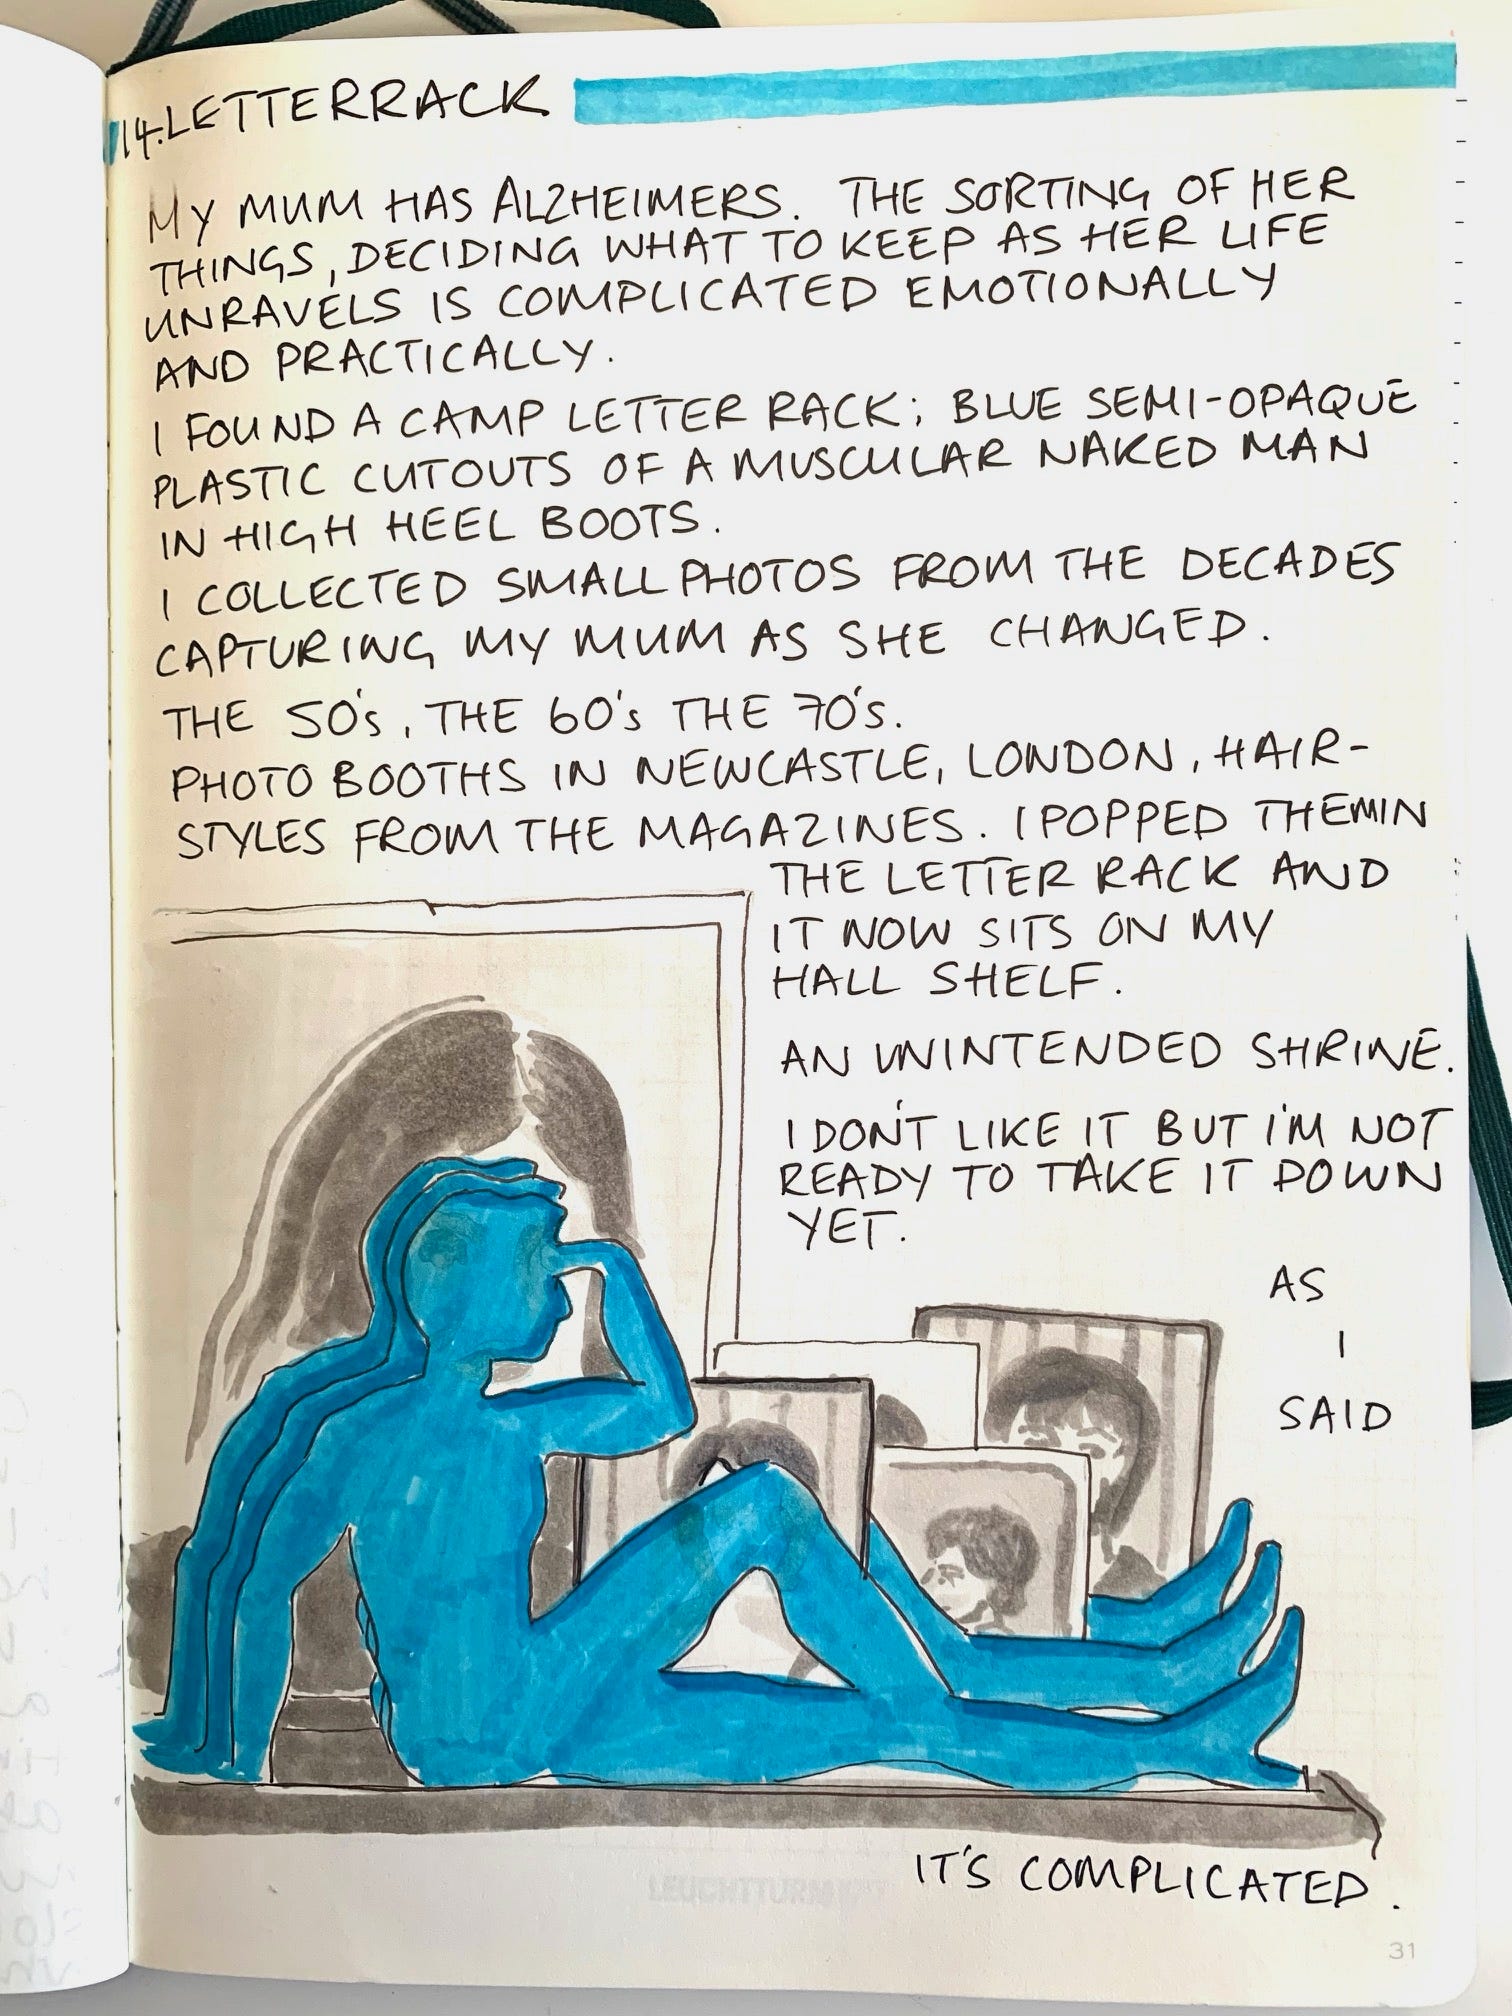 14. LETTERRACK
MY MUM HAS ALZHEIMERS. THE SORTING OF HER
THINGS, DECIDING WHAT TO KEEP AS HER LIFE
UNRAVELS IS COMPLICATED EMOTIONALLY
AND PRACTICALLY.
I FOUND A CAMP LETTER RACK; BLUE SEMI-OPAQUE
PLASTIC CUTOUTS OF A MUSCULAR NAKED MAN
IN HIGH HEEL BOOTS.
I COLLECTED SMALL PHOTOS FROM THE DECADES
CAPTURING MY MUM AS SHE CHANGED.
THE 50's, THE 60's THE 70's.
PHOTO BOOTHS IN NEWCASTLE, LONDON, HAIR-
STYLES FROM THE MAGAZINES. I POPPED THEM IN
THE LETTER RACK AND
IT NOW SITS ON MY
HALL SHELF.
AN UNINTENDED SHRINE.
I DON'T LIKE IT BUT I'M NOT
READY TO TAKE IT DOWN
YET.
AS
I
SAID
IT'S COMPLICATED.
LEUCHTTURM1917
31